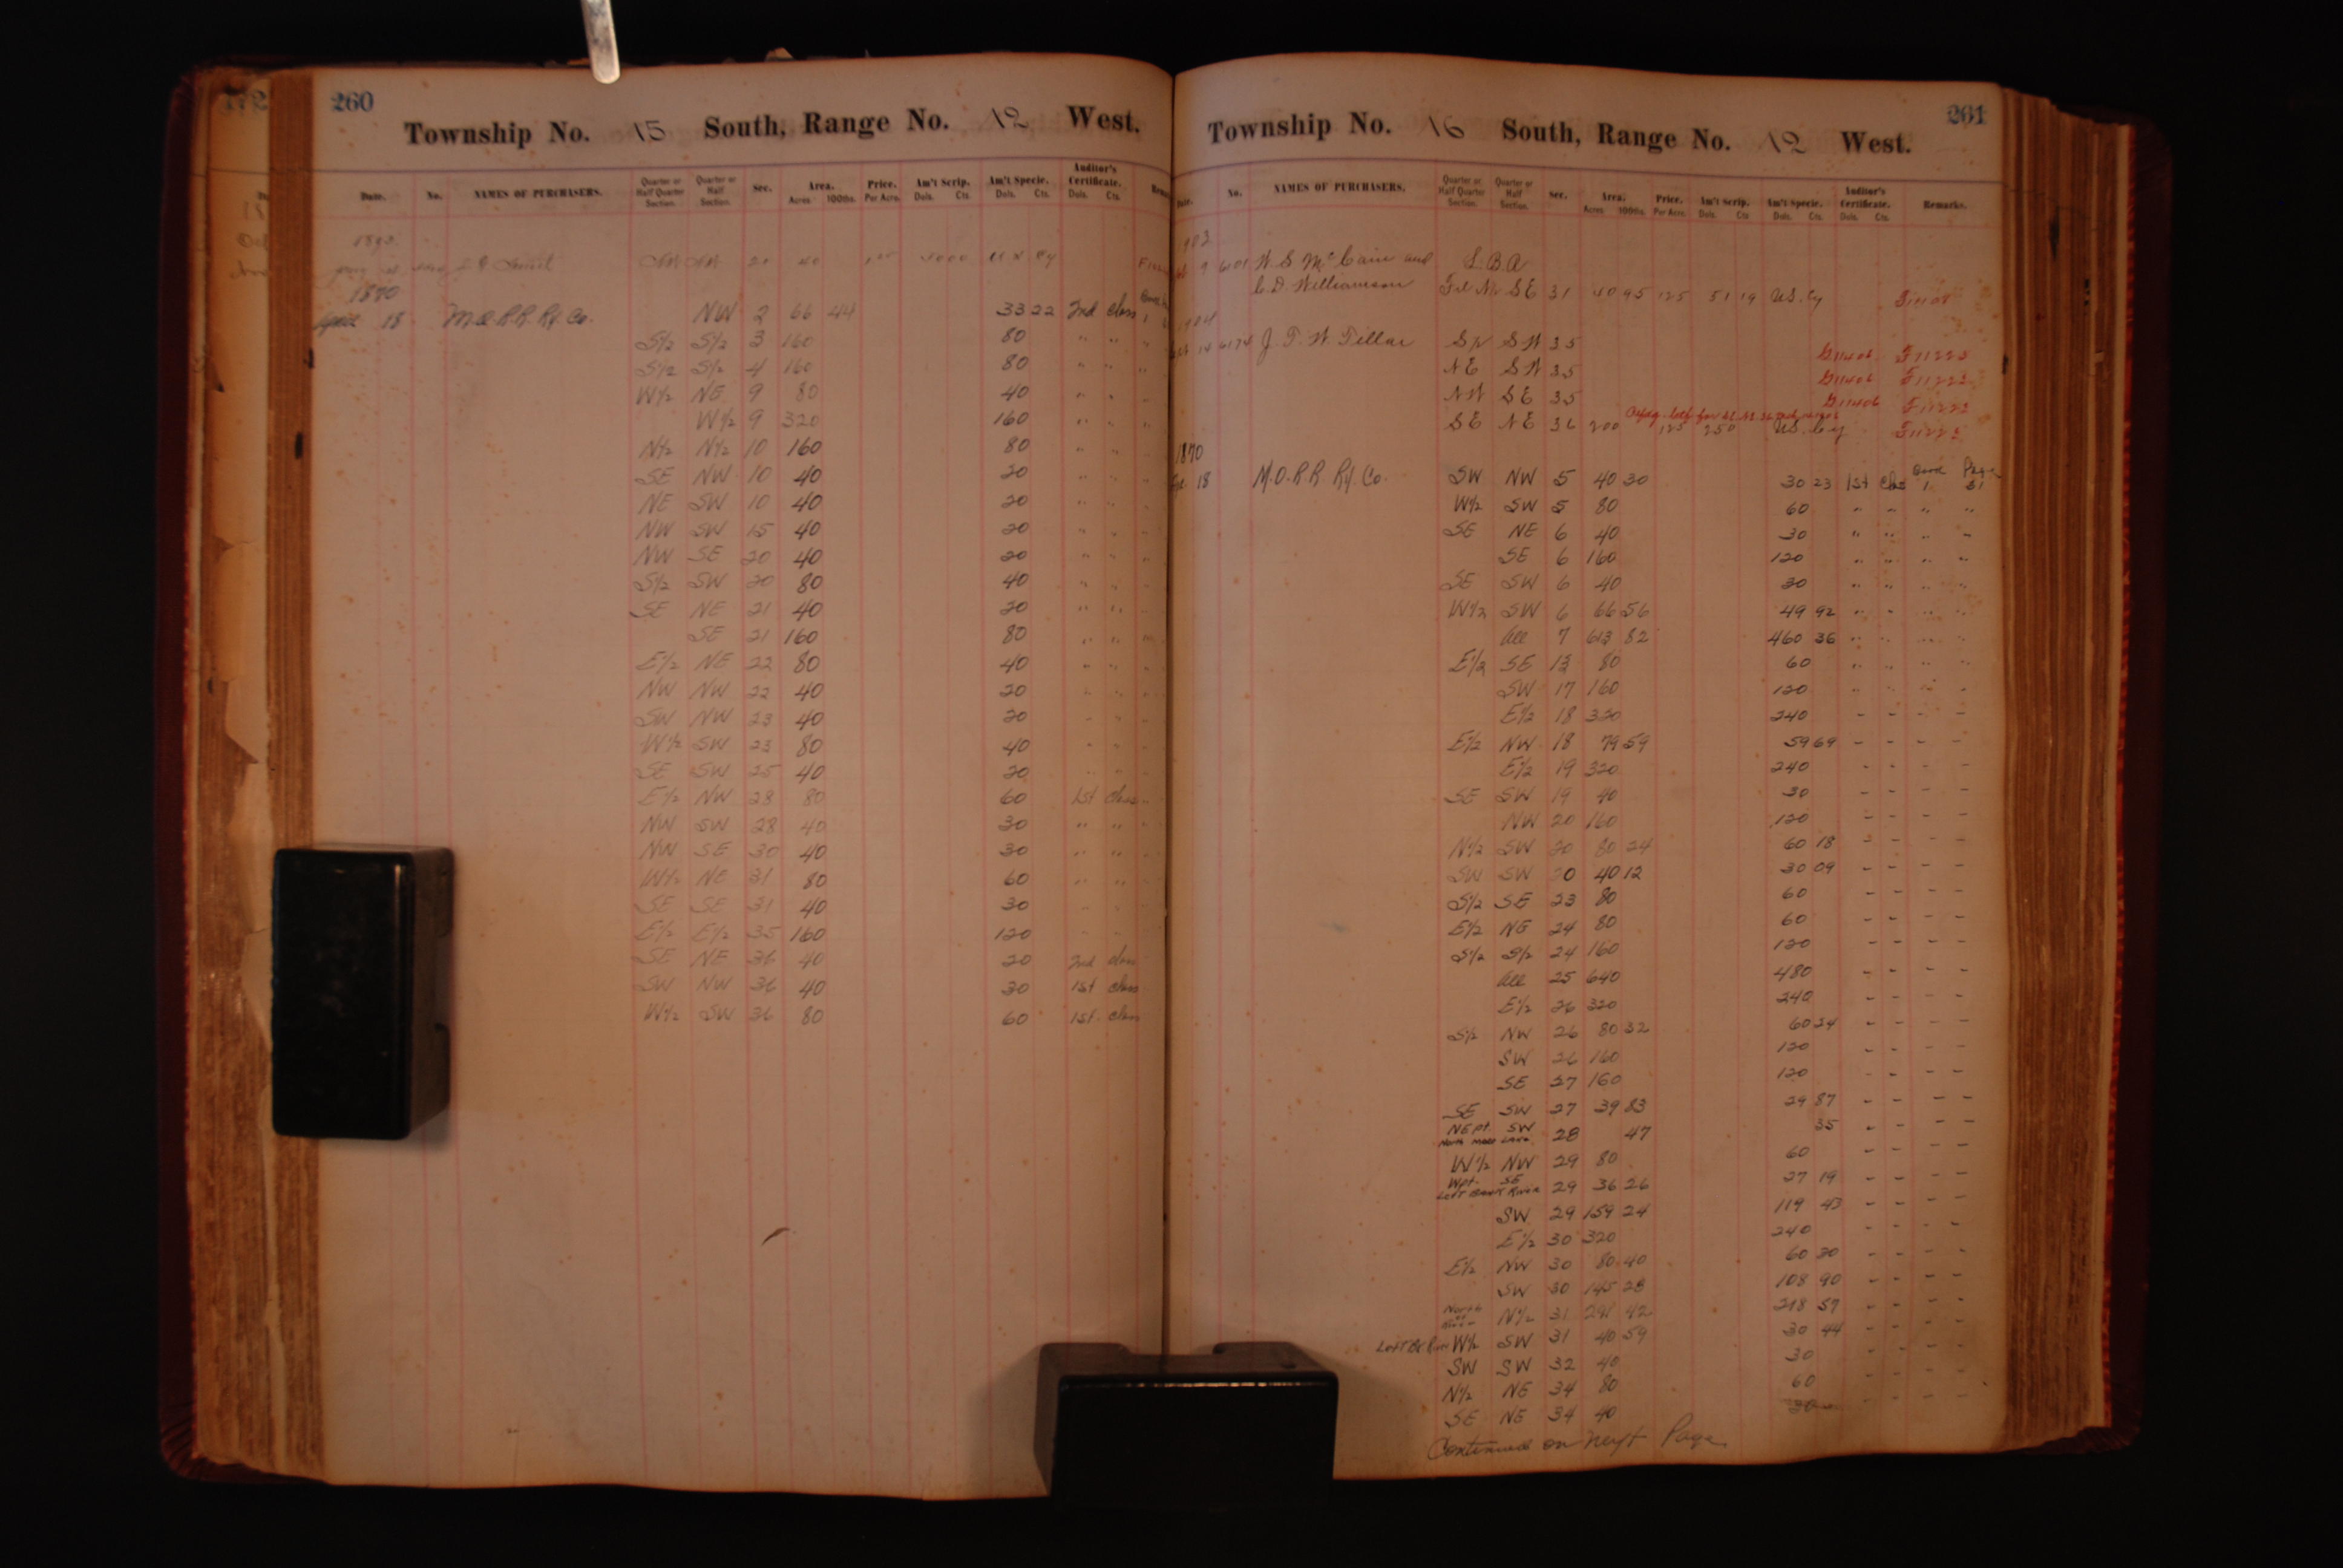 260
Township No. 15 South, Range No. 12 West.
Date. No. NAMES OF PURCHASERS. Quarter or Half Quarter Section. Quarter or Half Section. Sec. Area. Acres 100ths. Price. Per Acre. Am't Scrip. Dols. Cts. Am't Specie. Dols. Cts. Auditor's Certificate. Dols. Cts.
20 40
1870
April 18 M.O.R.R. Ry. Co. NW 2 66 44 33 22 2nd class 1
S½ S½ 3 160 80 " " "
S½ S½ 4 160 80 " " "
W½ NE 9 80 40 " " "
W½ 9 320 160 " " "
N½ N½ 10 160 80 " " "
SE NW 10 40 20 " " "
NE SW 10 40 20 " " "
NW SW 15 40 20 " " "
NW SE 20 40 20 " " "
S½ SW 20 80 40 " " "
SE NE 21 40 20 " " "
SE 21 160 80 " " "
E½ NE 22 80 40 " " "
NW NW 22 40 20 " " "
SW NW 23 40 20 " " "
W½ SW 23 80 40 " " "
SE SW 25 40 20 " " "
E½ NW 28 80 60 1st class "
NW SW 28 40 30 " " "
NW SE 30 40 30 " " "
W½ NE 31 80 60 " " "
SE SE 31 40 30 " " "
E½ E½ 35 160 120 " " "
SE NE 36 40 20 2nd class
SW NW 36 40 30 1st class
W½ SW 36 80 60 1st. class
261
Township No. 16 South, Range No. 12 West.
Date. No. NAMES OF PURCHASERS. Quarter or Half Quarter Section. Quarter or Half Section. Sec. Area. Acres 100ths. Price. Per Acre. Am't Scrip. Dols. Cts Am't Specie. Dols. Cts. Auditor's Certificate. Dols. Cts. Remarks.
W. S. McCain and L.B.A
C.D. Williamson Frl Nw SE 31 40 95 125 51 19 US. Cy
J. T. W. Tillar SW SW 35 G11406 F11223
NE SW 35 G11406 F11223
NW SE 35 G11406 F11223
SE NE 36 200 125 250 US. Cy F11223
1870
18 M.O.R.R Ry. Co. SW NW 5 40 30 30 23 1st Class Page
W½ SW 5 80 60 " " " "
SE NE 6 40 30 " " " "
SE 6 160 120 " " " "
SE SW 6 40 30 " " " "
W½ SW 6 66 56 49 92 " " " "
All 7 613 82 460 36 " " " "
E½ SE 13 80 60 " " " "
SW 17 160 120 " " " "
E½ 18 320 240 - - - -
E½ NW 18 79 59 59 69 - - - -
E½ 19 320 240 - - - -
SE SW 19 40 30 - - - -
NW 20 160 120 - - - -
N½ SW 20 80 24 60 18 - - - -
SW SW 20 40 12 30 09 - - - -
S½ SE 23 80 60 - - - -
E½ NE 24 80 60 - - - -
S½ S½ 24 160 120 - - - -
All 25 640 480 - - - -
E½ 26 320 240 - - - -
S½ NW 26 80 32 60 24 - - - -
SW 26 160 120 - - - -
SE 27 160 120 - - - -
SE SW 27 39 83 29 87 - - - -
NE pt. SW
North Lake 28 47 35 - - - -
W½ NW 29 80 60 - - - -
Wpt. SE
Left Bank River 29 36 26 27 19 - - - -
SW 29 159 24 119 43 - - - -
E½ 30 320 240 - - - -
E½ NW 30 80 40 60 30 - - - -
SW 30 145 28 108 90 - - - -
North of River N½ 31 291 42 218 57 - - - -
Left Bk River W½ SW 31 40 59 30 44 - - - -
SW SW 32 40 30 - - - -
N½ NE 34 80 60 - - - -
SE NE 34 40 30 - - - -
Continued on next Page